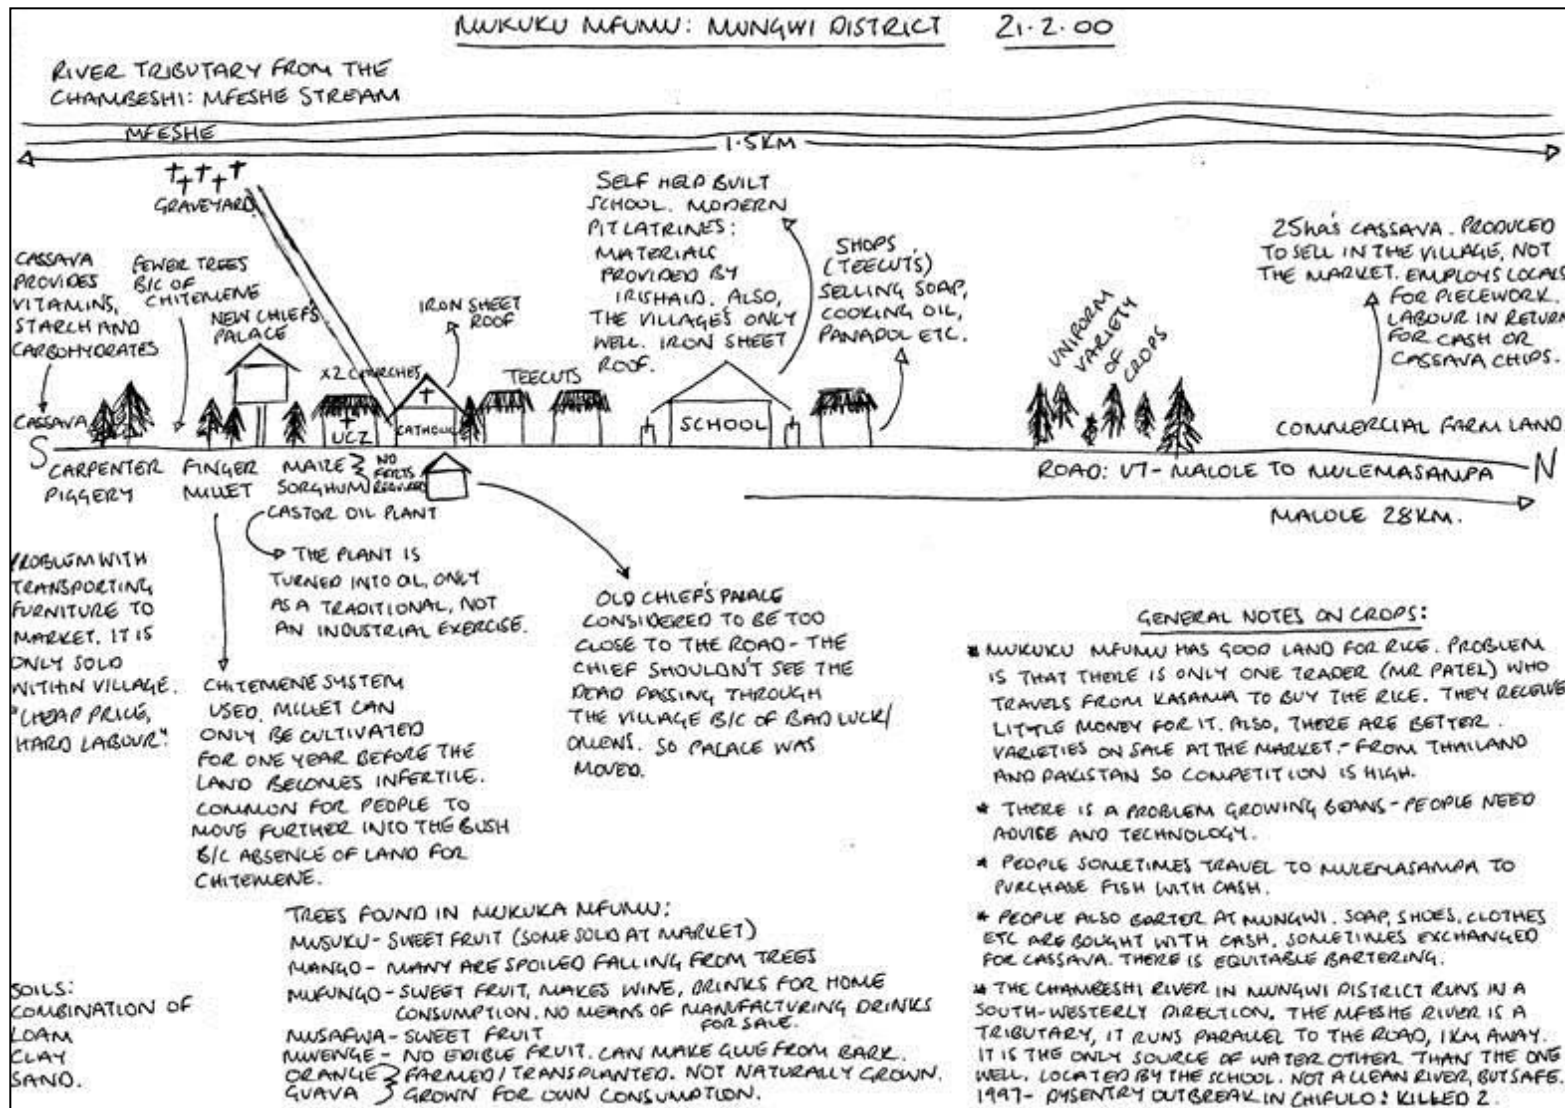 MUKUKU MFUMU: MUNGWI DISTRICT 21.2.00
RIVER TRIBUTARY FROM THE
CHAMBESHI: MFESHE STREAM
MFESHE
1.5KM
GRAVEYARD
CASSAVA
PROVIDES
VITAMINS,
STARCH AND
CARBOHYDRATES
FEWER TREES
B/C OF
CHITEMENE
NEW CHIEF'S
PALACE
X2 CHURCHES
IRON SHEET
ROOF
TEECUTS
SELF HELP BUILT
SCHOOL. MODERN
PIT LATRINES:
MATERIALS
PROVIDED BY
IRISHAID. ALSO,
THE VILLAGE'S ONLY
WELL. IRON SHEET
ROOF.
SHOPS
(TEECUTS)
SELLING SOAP,
COOKING OIL,
PANADOL ETC.
UNIFORM
VARIETY
OF
CROPS
25ha's CASSAVA. PRODUCED
TO SELL IN THE VILLAGE, NOT
THE MARKET. EMPLOYS LOCALS
FOR PIECEWORK.
LABOUR IN RETURN
FOR CASH OR
CASSAVA CHIPS.
CASSAVA
UCZ
CATHOLIC
SCHOOL
COMMERCIAL FARM LAND
S
N
CARPENTER
PIGGERY
FINGER
MILLET
MAIZE
SORGHUM
NO
FERTS
REQUIRED
CASTOR OIL PLANT
ROAD: U7 - MALOLE TO MULEMASAMPA
MALOLE 28KM.
PROBLEM WITH
TRANSPORTING
FURNITURE TO
MARKET. IT IS
ONLY SOLD
WITHIN VILLAGE.
"CHEAP PRICE,
HARD LABOUR"
THE PLANT IS
TURNED INTO OIL, ONLY
AS A TRADITIONAL, NOT
AN INDUSTRIAL EXERCISE.
CHITEMENE SYSTEM
USED. MILLET CAN
ONLY BE CULTIVATED
FOR ONE YEAR BEFORE THE
LAND BECOMES INFERTILE.
COMMON FOR PEOPLE TO
MOVE FURTHER INTO THE BUSH
B/C ABSENCE OF LAND FOR
CHITEMENE.
OLD CHIEF'S PALACE
CONSIDERED TO BE TOO
CLOSE TO THE ROAD - THE
CHIEF SHOULDN'T SEE THE
DEAD PASSING THROUGH
THE VILLAGE B/C OF BAD LUCK/
OMENS. SO PALACE WAS
MOVED.
GENERAL NOTES ON CROPS:
* MUKUKU MFUMU HAS GOOD LAND FOR RICE. PROBLEM
IS THAT THERE IS ONLY ONE TRADER (MR PATEL) WHO
TRAVELS FROM KASAMA TO BUY THE RICE. THEY RECEIVE
LITTLE MONEY FOR IT. ALSO, THERE ARE BETTER
VARIETIES ON SALE AT THE MARKET - FROM THAILAND
AND PAKISTAN SO COMPETITION IS HIGH.
* THERE IS A PROBLEM GROWING BEANS - PEOPLE NEED
ADVISE AND TECHNOLOGY.
* PEOPLE SOMETIMES TRAVEL TO MULEMASAMPA TO
PURCHASE FISH WITH CASH.
* PEOPLE ALSO BARTER AT MUNGWI. SOAP, SHOES, CLOTHES
ETC ARE BOUGHT WITH CASH, SOMETIMES EXCHANGED
FOR CASSAVA. THERE IS EQUITABLE BARTERING.
* THE CHAMBESHI RIVER IN MUNGWI DISTRICT RUNS IN A
SOUTH-WESTERLY DIRECTION. THE MFESHE RIVER IS A
TRIBUTARY, IT RUNS PARALLEL TO THE ROAD, 1KM AWAY.
IT IS THE ONLY SOURCE OF WATER OTHER THAN THE ONE
WELL. LOCATED BY THE SCHOOL. NOT A CLEAN RIVER, BUT SAFE.
1997 - DYSENTRY OUTBREAK IN CHIFULO: KILLED 2.
TREES FOUND IN MUKUKA MFUMU:
MUSUKU - SWEET FRUIT (SOME SOLD AT MARKET)
MANGO - MANY ARE SPOILED FALLING FROM TREES
MUFUNGO - SWEET FRUIT, MAKES WINE, DRINKS FOR HOME
CONSUMPTION. NO MEANS OF MANUFACTURING DRINKS
FOR SALE.
MUSAFWA - SWEET FRUIT
MWENGE - NO EDIBLE FRUIT. CAN MAKE GLUE FROM BARK.
ORANGE } FARMED / TRANSPLANTED. NOT NATURALLY GROWN.
GUAVA } GROWN FOR OWN CONSUMPTION.
SOILS:
COMBINATION OF
LOAM
CLAY
SAND.